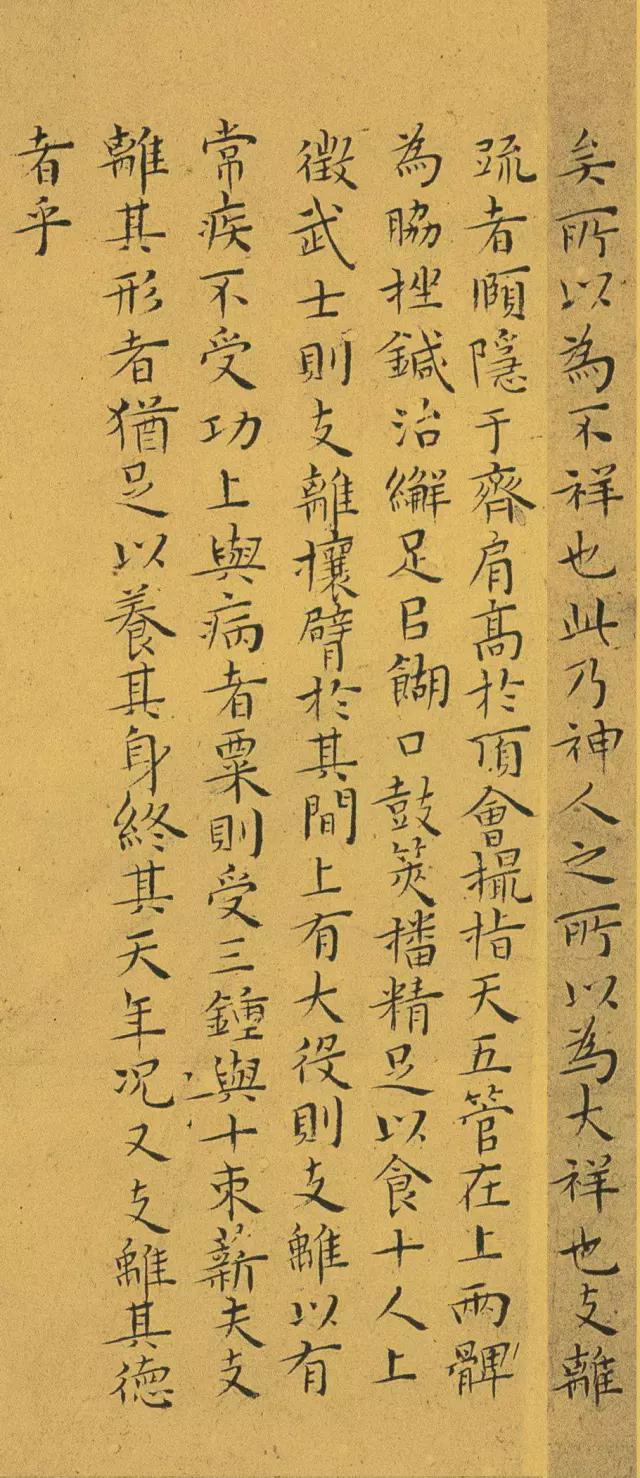 矣所以為不祥也此乃神人之所以為大祥也支離
疏者頤隱于齊肩高於頂會撮指天五管在上兩髀
為脇挫鍼治繲足㠯餬口鼓筴播精足以食十人上
徵武士則支離攘臂於其間上有大役則支離以有
常疾不受功上與病者粟則受三鍾與十束薪夫支
離其形者猶足以養其身終其天年況又支離其德
者乎